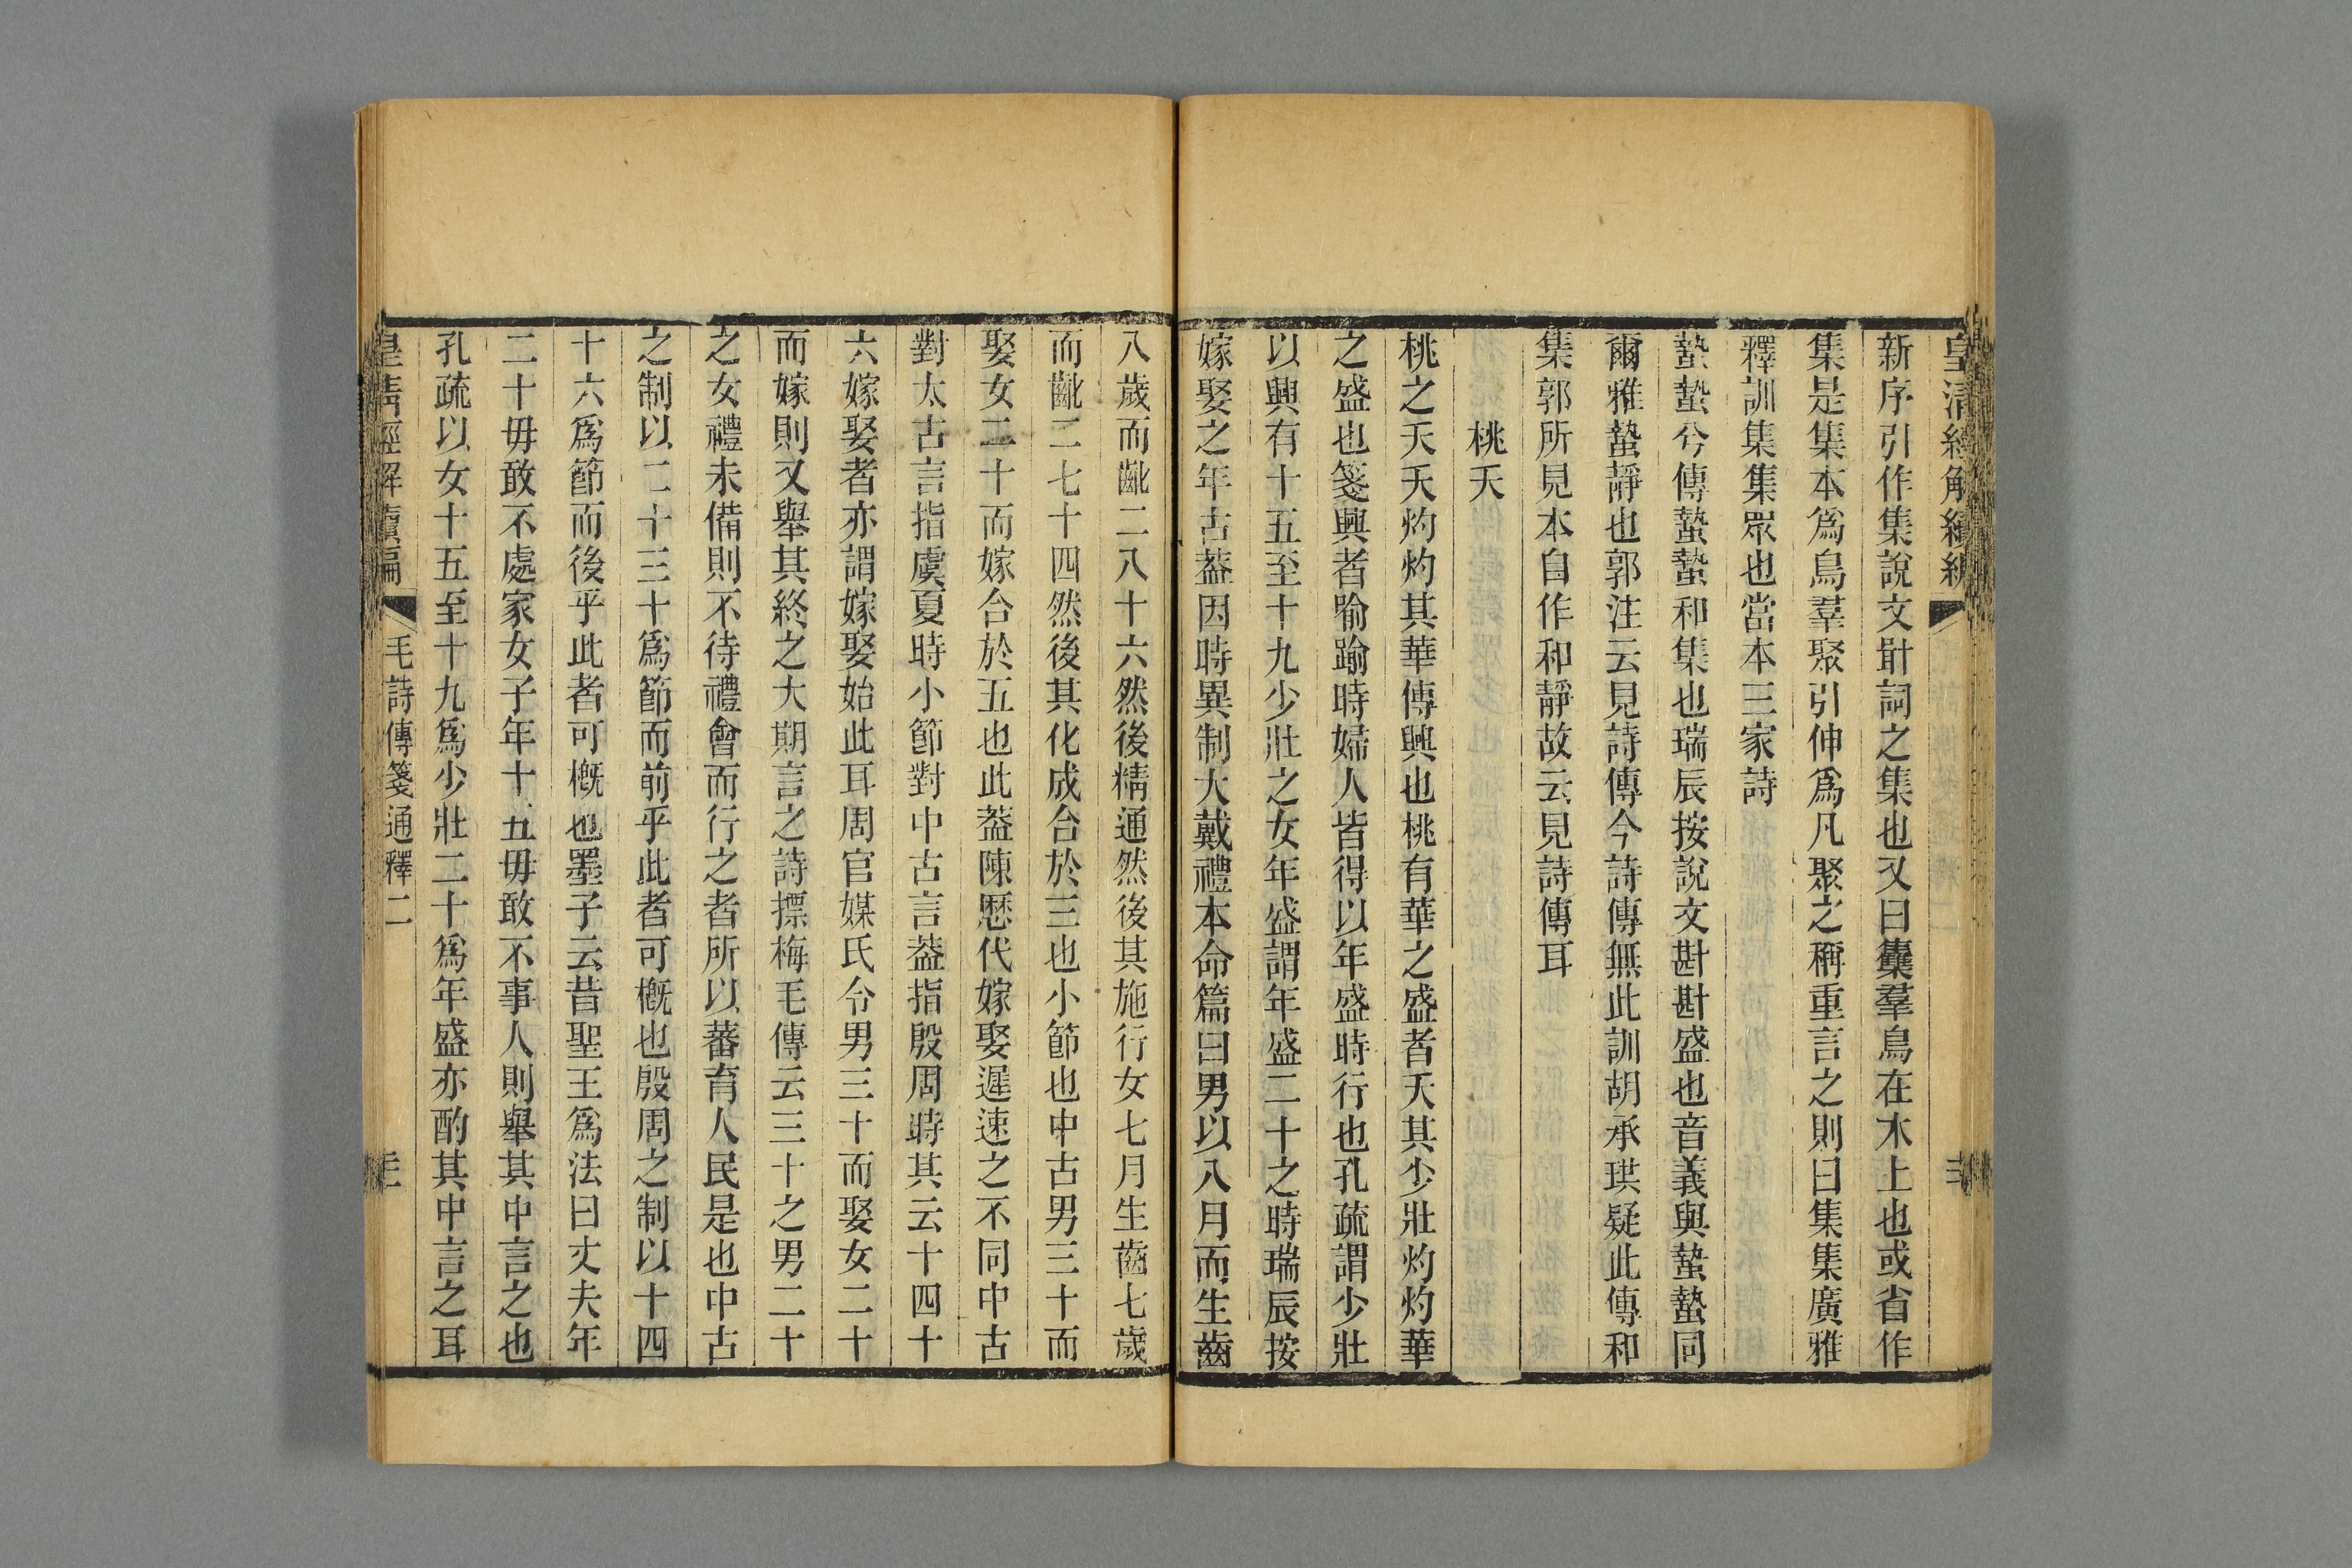 皇清經解續編
新序引作集說文𠱧詞之集也又曰雧羣鳥在木上也或省作
集是集本爲鳥羣聚引伸爲凡聚之稱重言之則曰集集廣雅
釋訓集集眾也當本三家詩
蟄蟄兮傳蟄蟄和集也瑞辰按說文斟斟盛也音義與蟄蟄同
爾雅蟄靜也郭注云見詩傳今詩傳無此訓胡承珙疑此傳和
集郭所見本自作和靜故云見詩傳耳
桃夭
桃之夭夭灼灼其華傳興也桃有華之盛者夭其少壯灼灼華
之盛也箋興者喻踰時婦人皆得以年盛時行也孔疏謂少壯
以興有十五至十九少壯之女年盛謂年盛二十之時瑞辰按
嫁娶之年古蓋因時異制大戴禮本命篇曰男以八月而生齒
八歲而齔二八十六然後精通然後其施行女七月生齒七歲
而齔二七十四然後其化成合於三也小節也中古男三十而
娶女二十而嫁合於五也此蓋陳歷代嫁娶遲速之不同中古
對太古言指虞夏時小節對中古言蓋指殷周時其云十四十
六嫁娶者亦謂嫁娶始此耳周官媒氏令男三十而娶女二十
而嫁則又舉其終之大期言之詩摽梅毛傳云三十之男二十
之女禮未備則不待禮會而行之者所以蕃育人民是也中古
之制以二十三十爲節而前乎此者可概也殷周之制以十四
十六爲節而後乎此者可概也墨子云昔聖王爲法曰丈夫年
二十毋敢不處家女子年十五毋敢不事人則舉其中言之也
孔疏以女十五至十九爲少壯二十爲年盛亦酌其中言之耳
皇清經解續編 毛詩傳箋通釋二